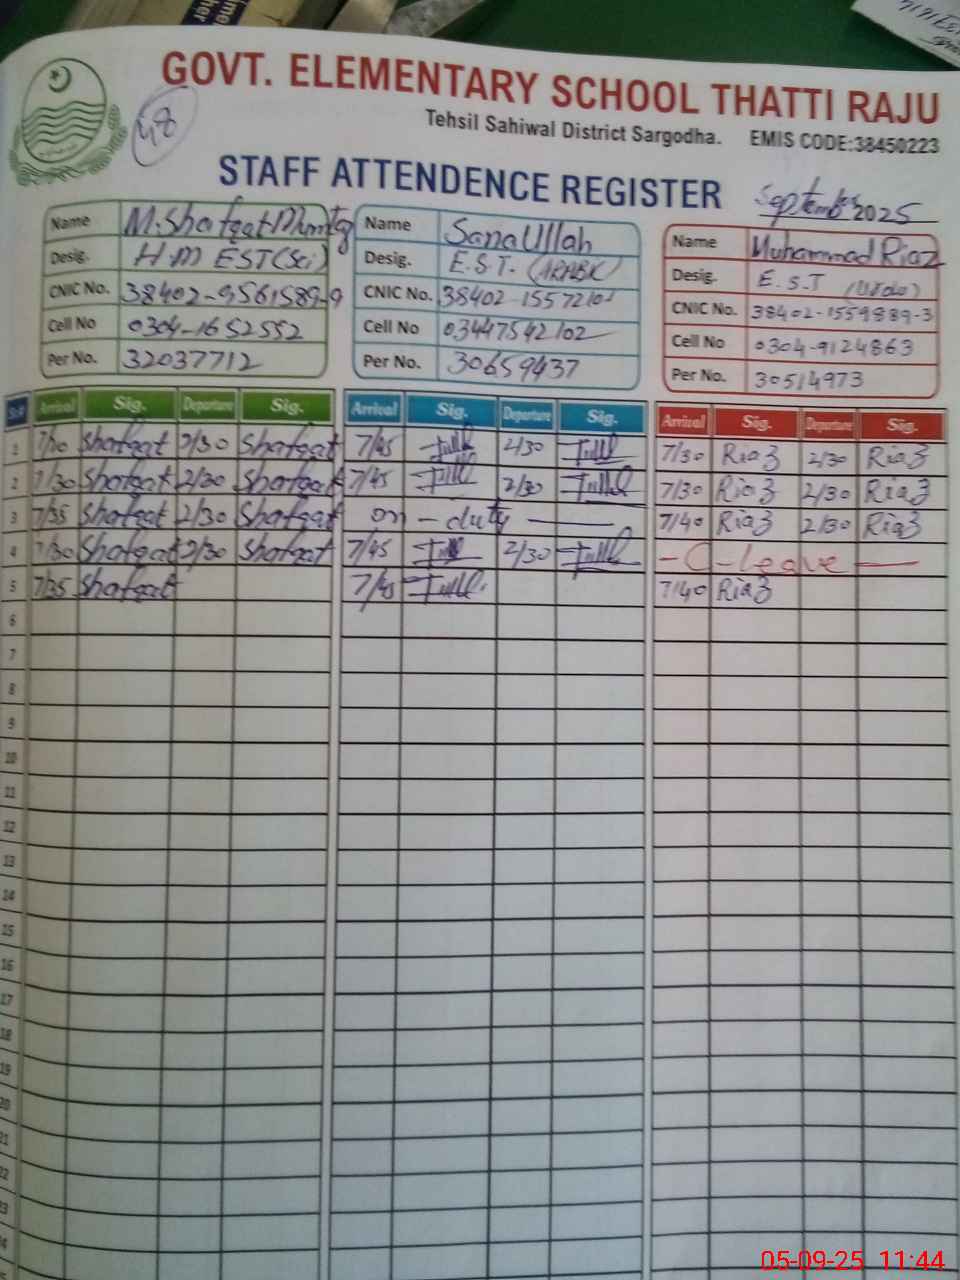 GOVT. ELEMENTARY SCHOOL THATTI RAJU
Tehsil Sahiwal District Sargodha. EMIS CODE:38450223
48
STAFF ATTENDENCE REGISTER September 2025
Name M.Shafqat Mumtaz Name Sana Ullah Name Muhammad Riaz
Desig. H.M EST(Sci) Desig. E.S.T. (ARABIC) Desig. E.S.T (Urdu)
CNIC No. 38402-9561589-9 CNIC No. 38402-1557210 CNIC No. 38402-1559889-3
Cell No 0304-1652552 Cell No 03447542102 Cell No 0304-9124863
Per No. 32037712 Per No. 30659437 Per No. 30514973
Sr# Arrival Sig. Departure Sig. Arrival Sig. Departure Sig. Arrival Sig. Departure Sig.
1 7/10 Shafqat 2/30 Shafqat 7/45 2/30 7/30 Riaz 2/30 Riaz
2 7/30 Shafqat 2/30 Shafqat 7/45 2/30 7/30 Riaz 2/30 Riaz
3 7/35 Shafqat 2/30 Shafqat on - duty 7/40 Riaz 2/30 Riaz
4 7/30 Shafqat 2/30 Shafqat 7/45 2/30 - C-leave
5 7/35 Shafqat 7/45 7/40 Riaz
6
7
8
9
10
11
12
13
14
15
16
17
18
19
20
21
22
23
24
05-09-25 11:44